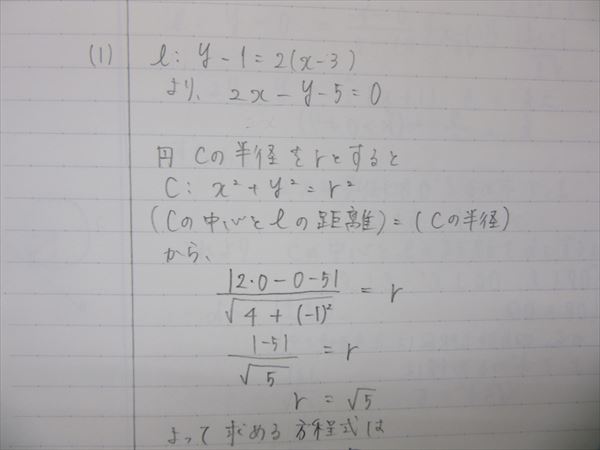 (1) l: y - 1 = 2(x - 3)
より、 2x - y - 5 = 0
円 Cの半径をrとすると
C: x² + y² = r²
(Cの中心とlの距離) = (Cの半径)
から、
|2·0 - 0 - 5| / √(4 + (-1)²) = r
|-5| / √5 = r
r = √5
よって求める方程式は